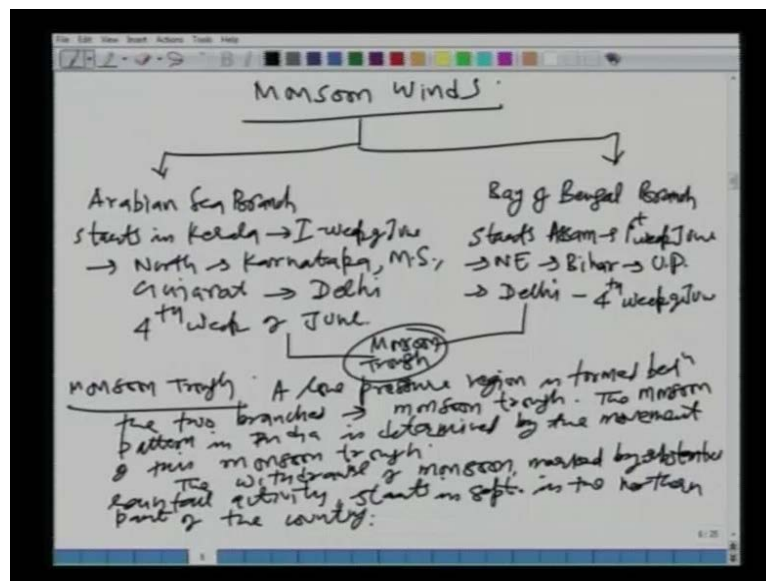 File Edit View Insert Actions Tools Help
Monsoon Winds.
Arabian Sea Branch
starts in Kerala → I-week of June
→ North → Karnataka, M.S.,
Gujarat → Delhi
4th week of June.
Bay of Bengal Branch
Starts Assam → 1st week June
→ NE → Bihar → U.P.
→ Delhi - 4th week of June
Monsoon
Trough
Monsoon Trough : A low pressure region is formed betn
the two branches → monsoon trough. The monsoon
pattern in India is determined by the movement
of this monsoon trough.
The withdrawal of monsoon, marked by
rainfall activity, starts in Sept. in the northern
part of the country.